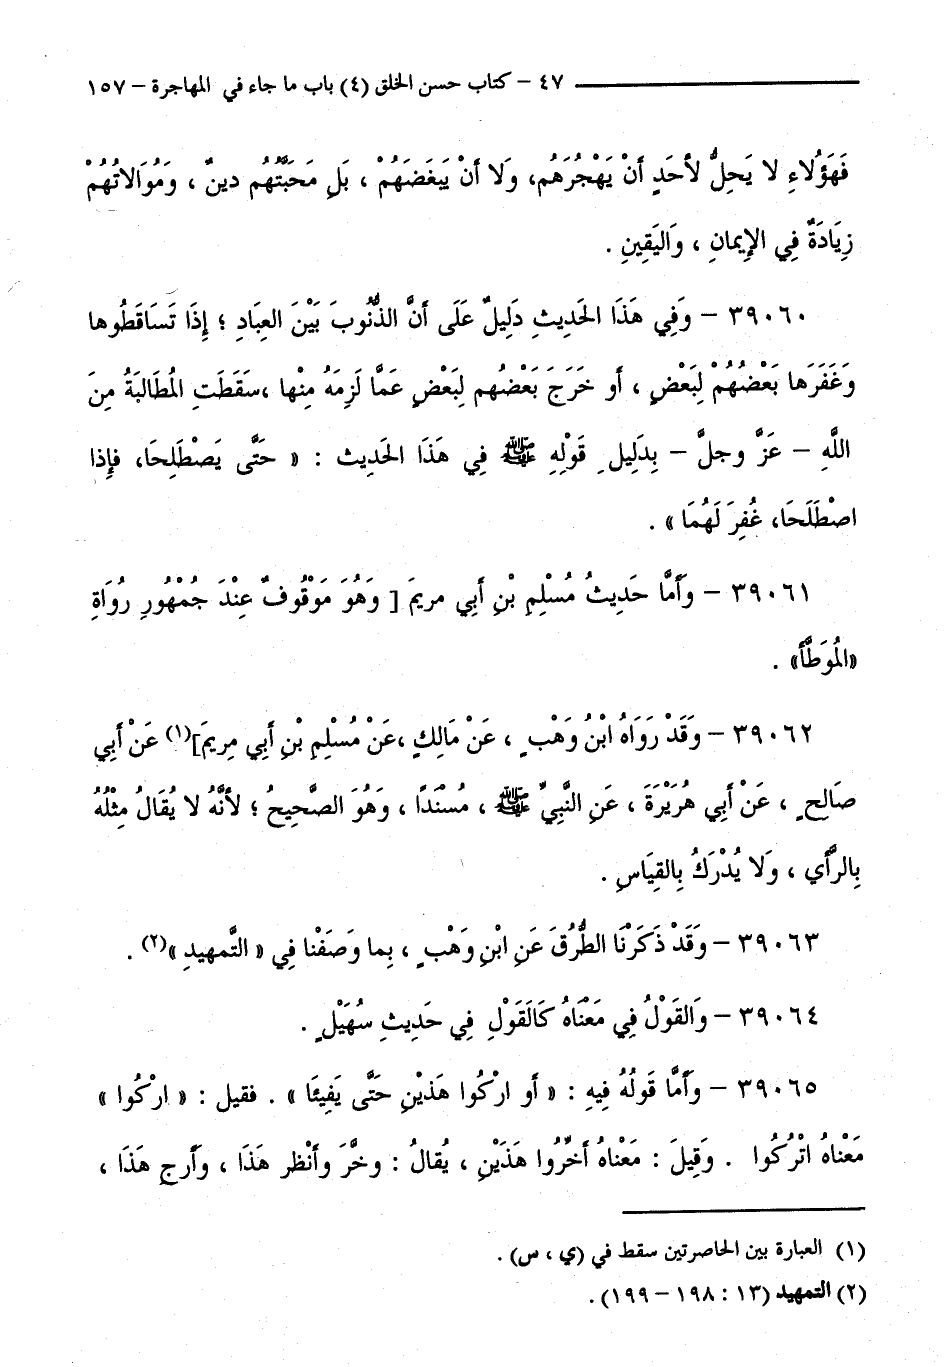 ٤٧ – كتاب حسن الخلق (٤) باب ما جاء في المهاجرة – ١٥٧
فَهَؤُلاءِ لا يَحِلُّ لأحَدٍ أنْ يَهْجُرَهُم، وَلا أنْ يَبغَضَهُمْ ، بَلِ مَحَبَّتُهُم دينٌ ، وَمُوَالاتُهُمْ
زِيَادَةٌ فِي الإِيمانِ ، وَاليَقِينِ .
٣٩٠٦٠ – وَفِي هَذَا الحَدِيثِ دَلِيلٌ عَلَى أنَّ الذُّنُوبَ بَيْنَ العِبَادِ ؛ إِذَا تَسَاقَطُوها
وَغَفَرَها بَعْضُهُمْ لِبَعْضٍ ، أو خَرَجَ بَعْضُهُم لِبَعْضٍ عَمَّا لَزِمَهُ مِنْها ،سَقَطَتِ المُطَالبَةُ مِنَ
اللَّهِ – عَزَّ وجلَّ – بِدَلِيلِ قَوْلِهِ ﷺ فِي هَذَا الحَدِيث : « حَتَّى يَصْطَلِحَا، فإِذا
اصْطَلَحَا، غُفِرَ لَهُمَا » .
٣٩٠٦١ – وَأَمَّا حَدِيثُ مُسْلِمِ بْنِ أَبِي مريمَ [ وَهُوَ مَوْقُوفٌ عِنْدَ جُمْهُورِ رُوَاةِ
«المُوَطَّأ» .
٣٩٠٦٢ – وَقَدْ رَوَاهُ ابْنُ وَهْبٍ ، عَنْ مَالِكٍ ،عَنْ مُسْلِمِ بْنِ أَبِي مِريمَ](١) عَنْ أَبِي
صَالِحٍ ، عَنْ أَبِي هُرَيْرَةَ ، عَنِ النَّبِيِّ ﷺ ، مُسْنَدًا ، وَهُوَ الصَّحِيحُ ؛ لأنَّهُ لا يُقَالُ مِثْلُهُ
بِالرَّأي ، وَلا يُدْرَكُ بِالقِيَاسِ .
٣٩٠٦٣ – وَقَدْ ذَكَرْنَا الطُّرُقَ عَنِ ابْنِ وَهْبٍ ، بِما وَصَفْنا فِي « التَّمهيدِ »(٢) .
٣٩٠٦٤ – وَالقَوْلُ فِي مَعْنَاهُ كَالَقَوْلِ فِي حَدِيثِ سُهَيْلٍ .
٣٩٠٦٥ – وَأَمَّا قَولُهُ فِيهِ : « أو ارْكُوا هَذيْنِ حَتَّى يَفِيئَا » . فقيل : « ارْكُوا »
مَعْناهُ اتْرُكُوا . وَقِيلَ : مَعْناهُ أخِّرُوا هَذَيْنِ ، يُقالُ : وخَّرَ وأنْظر هَذَا ، وَأَرجِ هَذَا ،
(١) العبارة بين الحاصرتين سقط في (ي ، س) .
(٢) التمهيد (١٣ : ١٩٨ – ١٩٩) .